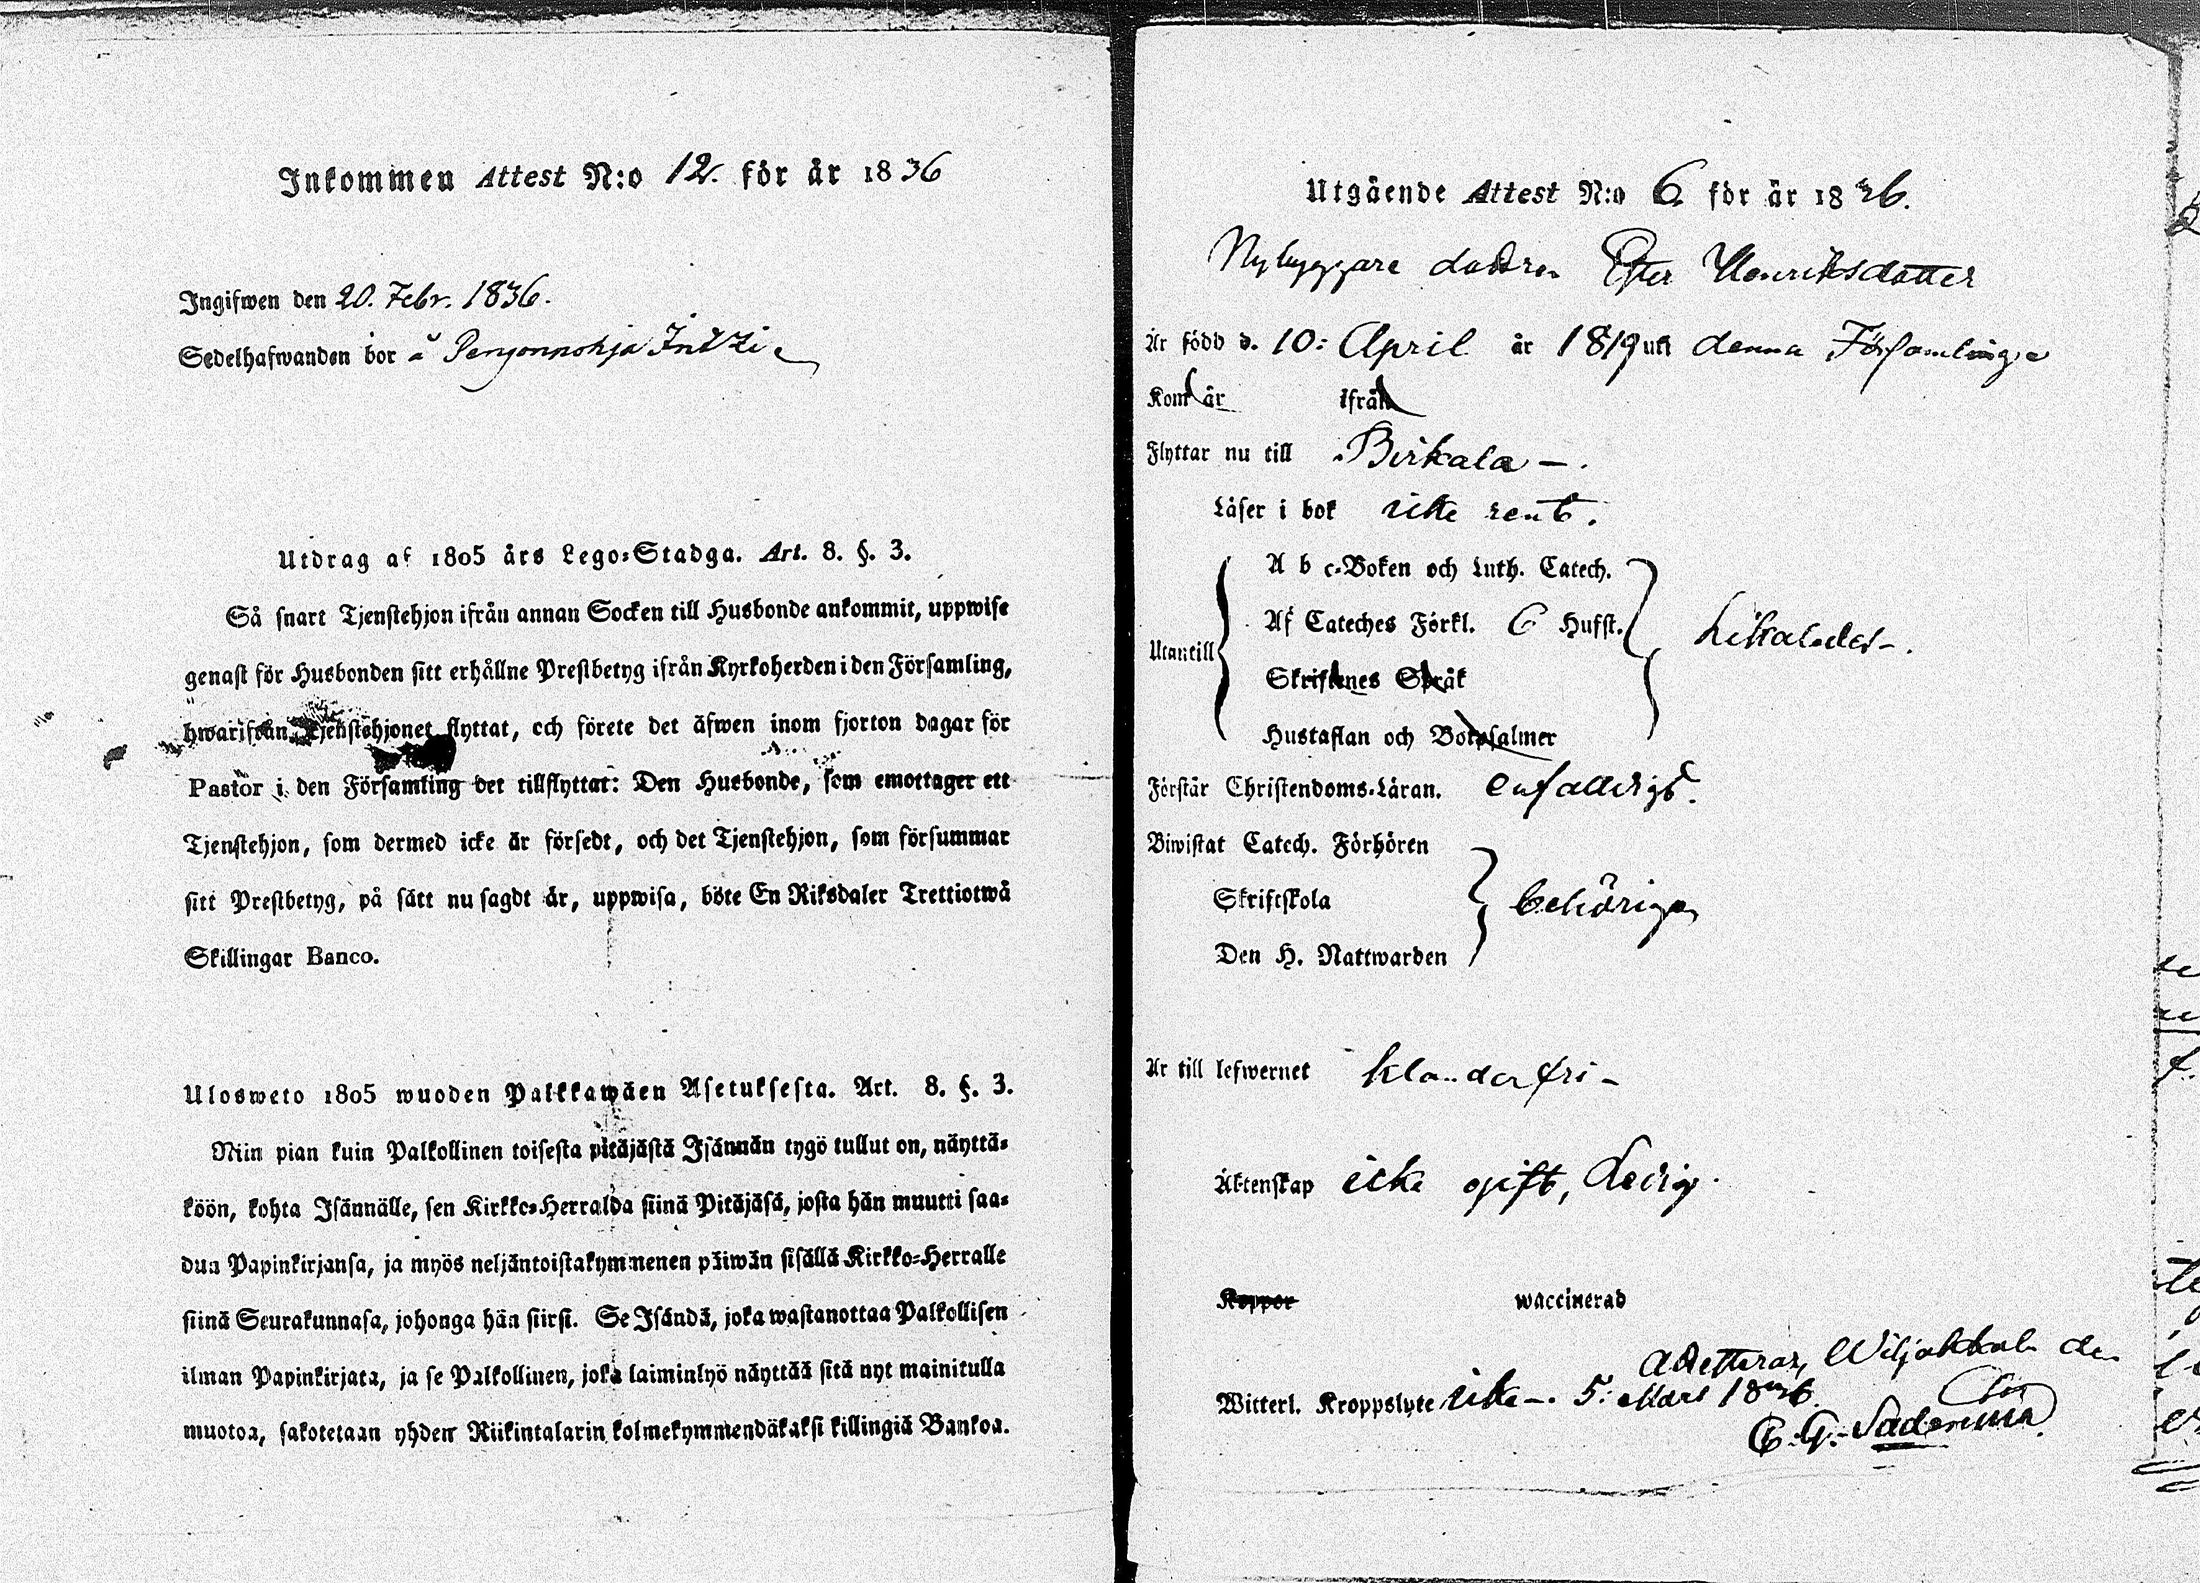 Inkommen Attest N:o 12. för år 1836
Ingifwen den 20. Febr. 1836.
Sedelhafwanden bor å
Utdrag af 1805 års Lego-Stadga. Art. 8. §. 3.
Så snart Tjenstehjon ifrån annan Socken till Husbonde ankommit, uppwise
genast för Husbonden sitt erhållne Prestbetyg ifrån Kyrkoherden i den Församling,
hwarifrån Tjenstehjonet flyttat, och förete det äfwen inom fjorton dagar för
Pastor i den Församling det tillflyttat: Den Husbonde, som emottager ett
Tjenstehjon, som dermed icke är försedt, och det Tjenstehjon, som försummar
sitt Prestbetyg, på sätt nu sagdt är, uppwisa, böte En Riksdaler Trettiotwå
Skillingar Banco.
Ulosweto 1805 wuoden Palkkawäen Asetuksesta. Art. 8. §. 3.
Niin pian kuin Palkollinen toisesta pitäjästä Isännän tygö tullut on, näyttä-
köön, kohta Isännälle, sen Kirkko-Herralda siinä Pitäjäsä, josta hän muutti saa-
dun Papinkirjansa, ja myös neljäntoistakymmenen päiwän sisällä Kirkko-Herralle
siinä Seurakunnasa, johonga hän siirsi. Se Isändä, joka wastanottaa Palkollisen
ilman Papinkirjata, ja se Palkollinen, joka laiminlyö näyttää sitä nyt mainitulla
muotoa, sakotetaan yhden Riikintalarin kolmekymmendäkaksi killingiä Bankoa.
Utgående Attest N:o 6 för år 1836.
Nybyggare dottren Ester Henriksdotter
Är född d. 10: April år 1819 uti denna Församlinge
Kom år ifrån
Flyttar nu till Birkala -.
Läser i bok icke rent.
Utantill
A b c-Boken och Luth. Catech.
Af Cateches Förkl. 6 Hufst.
Skriftenes Språk
Hustaflan och Botpsalmer
Likaledes -.
Förstår Christendoms-Läran. enfalldigt.
Biwistat Catech. Förhören
Skriftskola
Den H. Nattwarden
behörigen
Är till lefwernet klanderfri -
Äktenskap icke gift, Ledig.
Koppor waccinerad
Attesterar, Wiljakkala den
Witterl. Kroppslyte icke -. 5: Mart 1836.